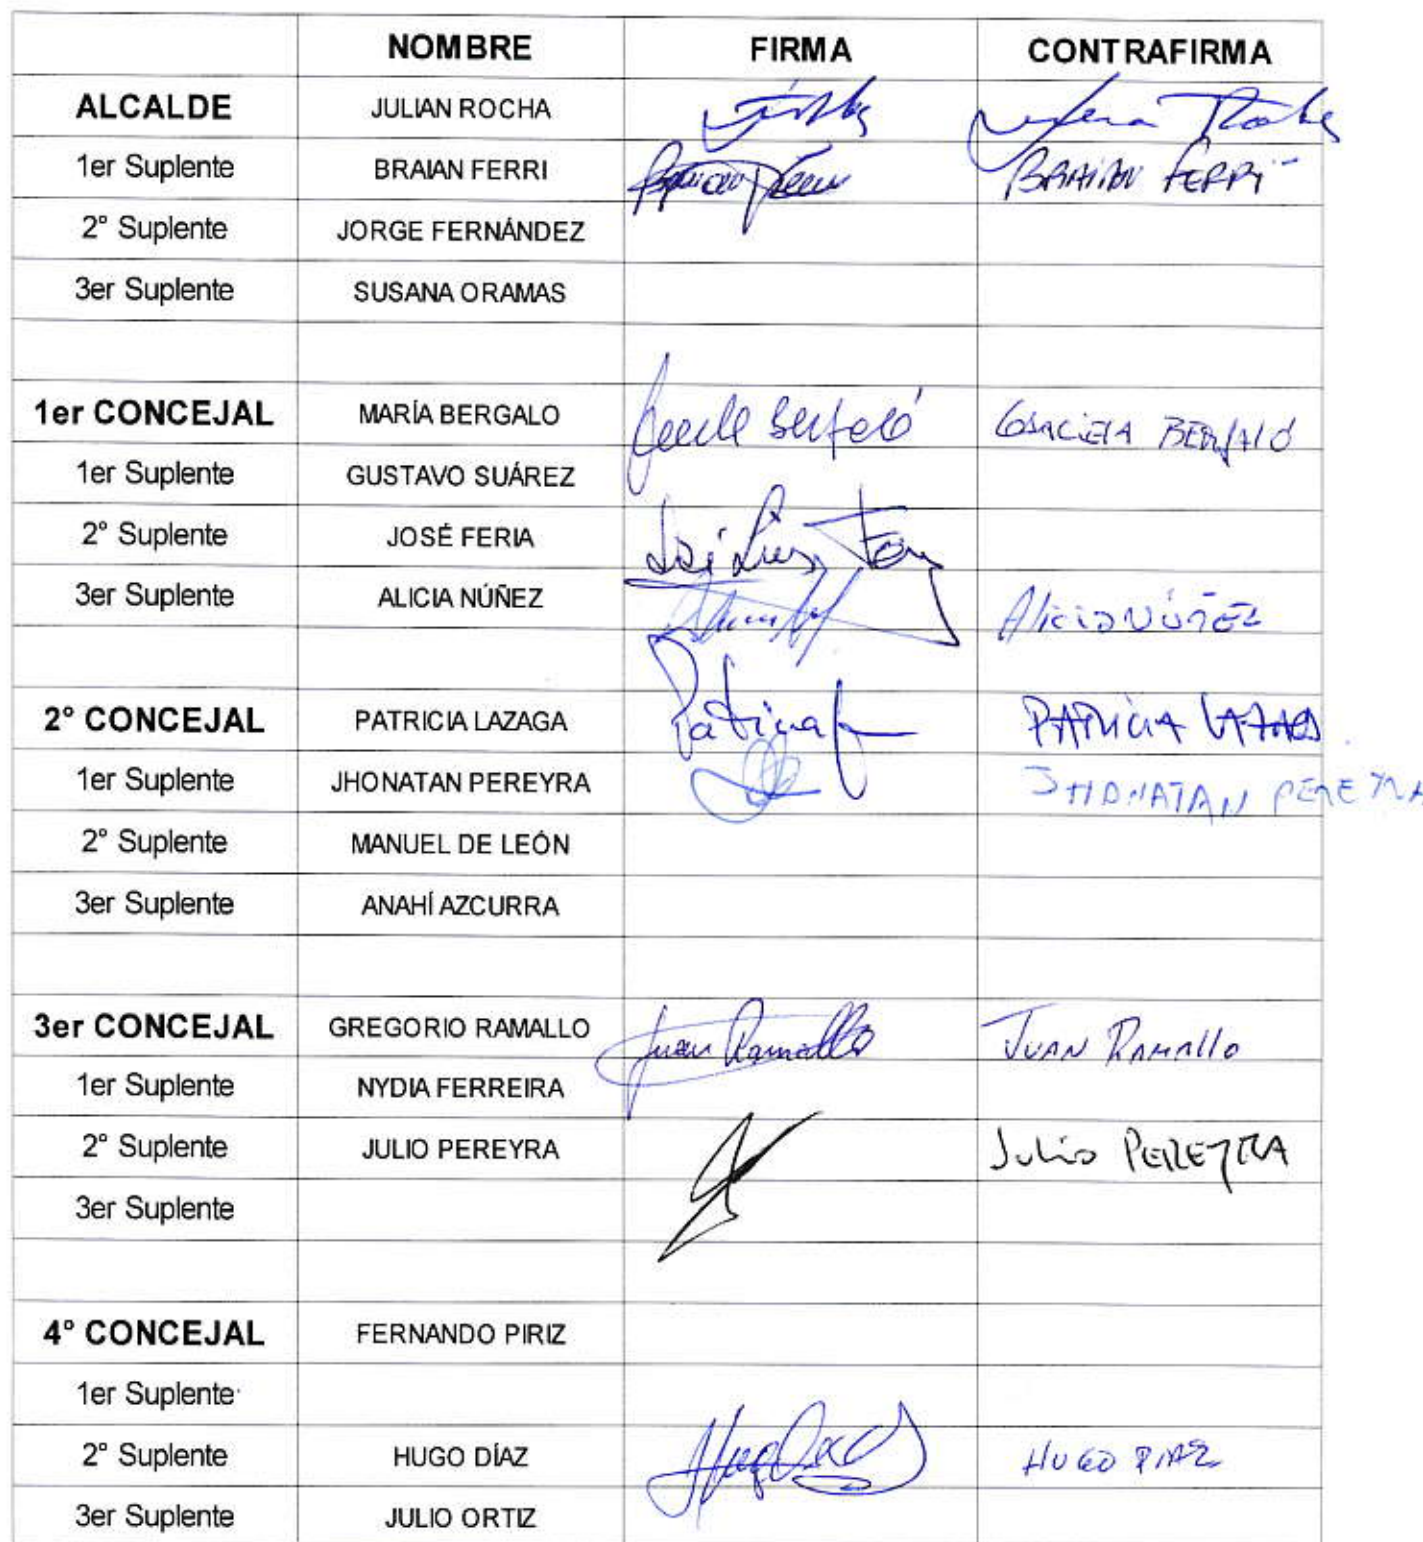 NOMBRE FIRMA CONTRAFIRMA
ALCALDE JULIAN ROCHA
1er Suplente BRAIAN FERRI BRAIAN FERRI
2° Suplente JORGE FERNÁNDEZ
3er Suplente SUSANA ORAMAS
1er CONCEJAL MARÍA BERGALO GRACIELA BERGALÓ
1er Suplente GUSTAVO SUÁREZ
2° Suplente JOSÉ FERIA José Luis
3er Suplente ALICIA NÚÑEZ Alicia NÚÑEZ
2° CONCEJAL PATRICIA LAZAGA Patricia PATRICIA LAZAGA
1er Suplente JHONATAN PEREYRA JHONATAN PEREYRA
2° Suplente MANUEL DE LEÓN
3er Suplente ANAHÍ AZCURRA
3er CONCEJAL GREGORIO RAMALLO Juan Ramallo JUAN RAMALLO
1er Suplente NYDIA FERREIRA
2° Suplente JULIO PEREYRA Julio PEREYRA
3er Suplente
4° CONCEJAL FERNANDO PIRIZ
1er Suplente
2° Suplente HUGO DÍAZ HUGO DIAZ
3er Suplente JULIO ORTIZ